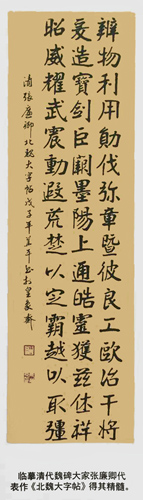 辨物利用勛伐弥章暨彼良工歐冶干将
爰造寶剑巨闕墨陽上通皓靈獲兹休祥
昭威耀武震動遐荒楚以定霸越以取彊
清張廉卿北魏大字帖戊子年
临摹清代魏碑大家张廉卿代
表作《北魏大字帖》得其精髓。